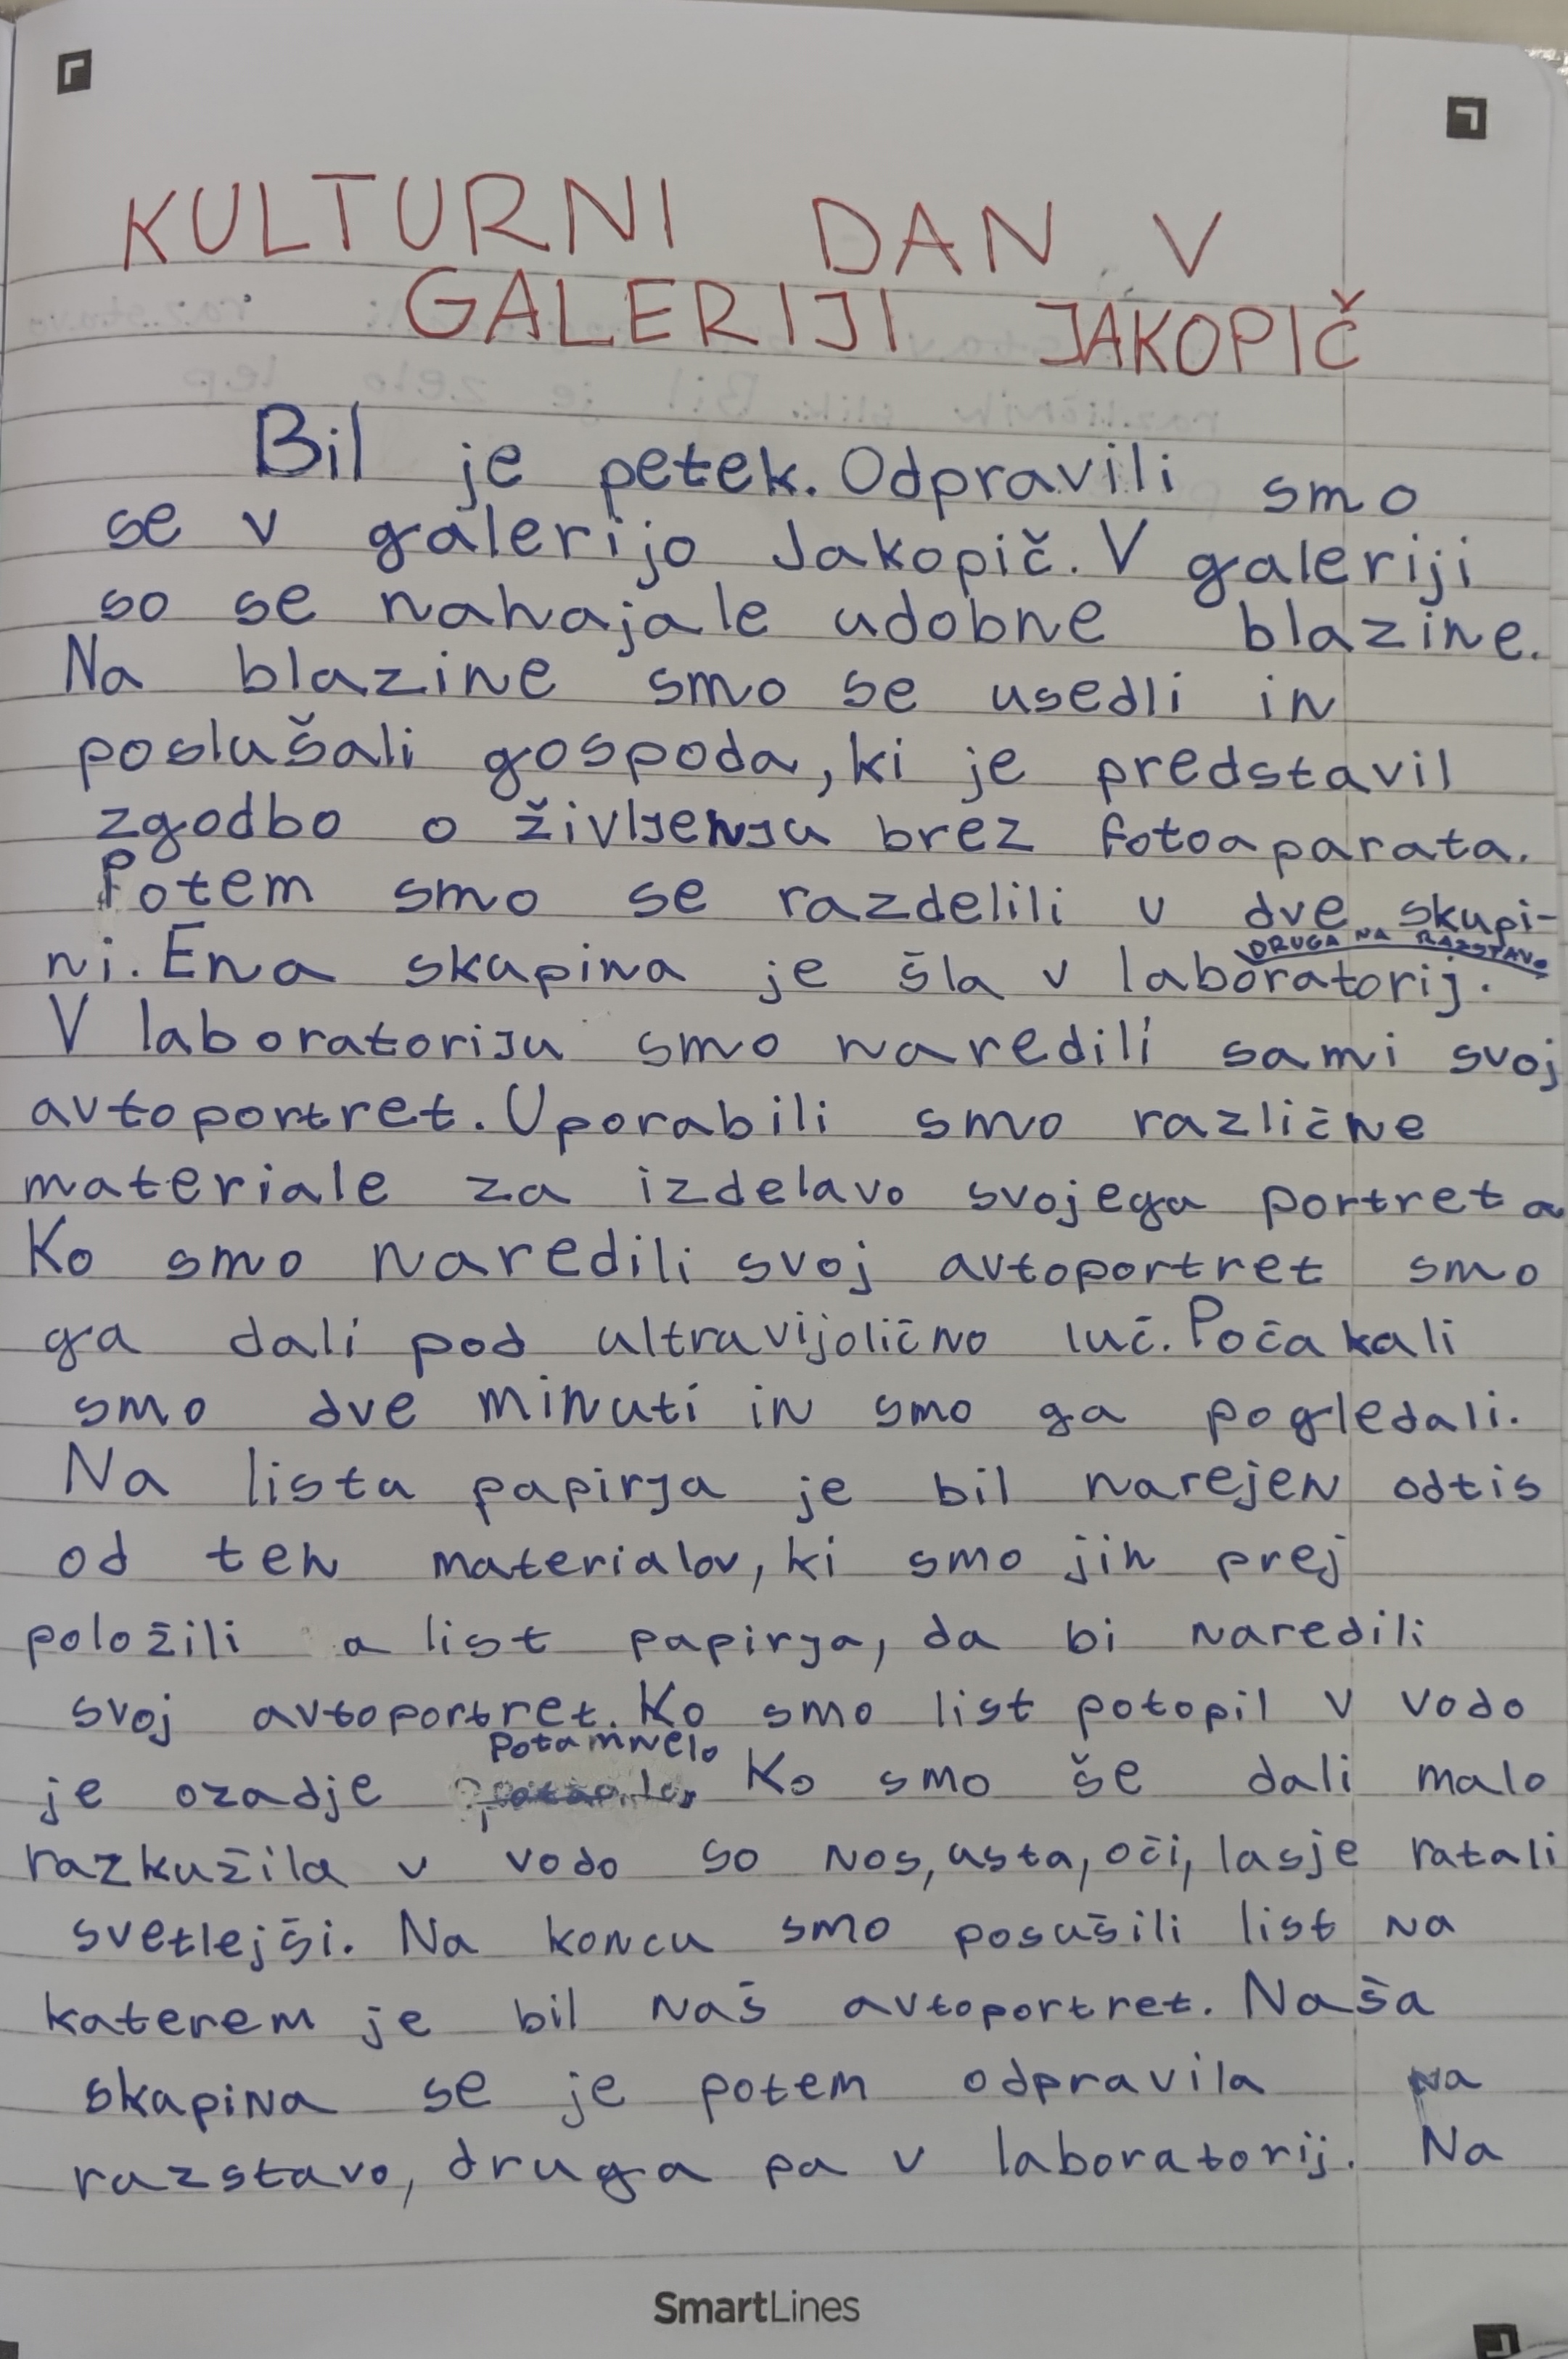 KULTURNI DAN V
GALERIJI JAKOPIČ
Bil je petek. Odpravili smo
se v galerijo Jakopič. V galeriji
so se nahajale udobne blazine.
Na blazine smo se usedli in
poslušali gospoda, ki je predstavil
zgodbo o življenju brez fotoaparata.
Potem smo se razdelili v dve skupi-
DRUGA NA RAZSTAVO
ni. Ena skupina je šla v laboratorij.
V laboratoriju smo naredili sami svoj
avtoportret. Uporabili smo različne
materiale za izdelavo svojega portreta
Ko smo naredili svoj avtoportret smo
ga dali pod ultravijolično luč. Počakali
smo dve minuti in smo ga pogledali.
Na listu papirja je bil narejen odtis
od teh materialov, ki smo jih prej
položili a list papirja, da bi naredili
svoj avtoportret. Ko smo list potopil v vodo
potamnelo
je ozadje Ko smo še dali malo
razkužila v vodo so nos, usta, oči, lasje ratali
svetlejši. Na koncu smo posušili list na
katerem je bil naš avtoportret. Naša
skupina se je potem odpravila na
razstavo, druga pa v laboratorij. Na
SmartLines